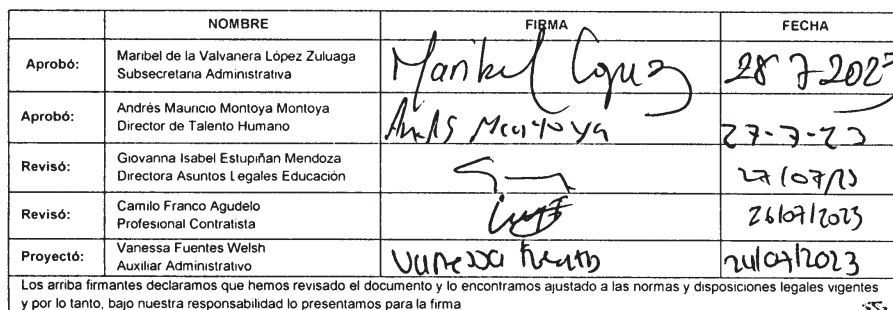 NOMBRE FIRMA FECHA
Aprobó: Maribel de la Valvanera López Zuluaga
Subsecretaria Administrativa
Maribel López 28 7-2023
Aprobó: Andrés Mauricio Montoya Montoya
Director de Talento Humano
Andrés Montoya 27-7-23
Revisó: Giovanna Isabel Estupiñan Mendoza
Directora Asuntos Legales Educación
27/07/23
Revisó: Camilo Franco Agudelo
Profesional Contratista
26/07/2023
Proyectó: Vanessa Fuentes Welsh
Auxiliar Administrativo
Vanessa Fuentes 24/07/2023
Los arriba firmantes declaramos que hemos revisado el documento y lo encontramos ajustado a las normas y disposiciones legales vigentes
y por lo tanto, bajo nuestra responsabilidad lo presentamos para la firma